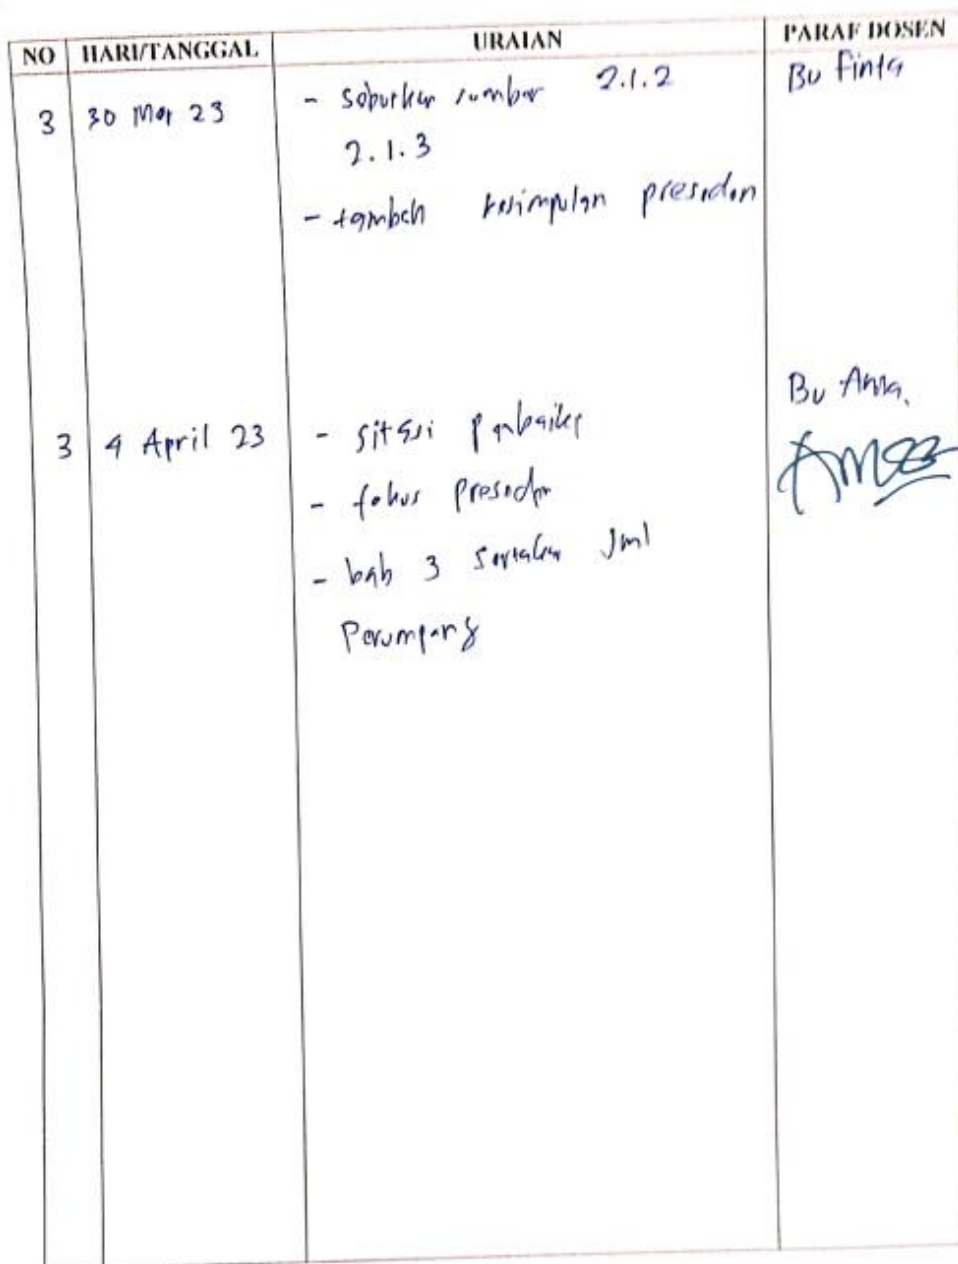 NO HARI/TANGGAL URAIAN PARAF DOSEN
3 30 Mar 23 - Sebutkan sumber 2.1.2 Bu Finta
2.1.3
- tambah kesimpulan preseden
3 4 April 23 - sitasi perbaiki Bu Anna.
- fokus preseden
- bab 3 sertakan Jml
Penumpang